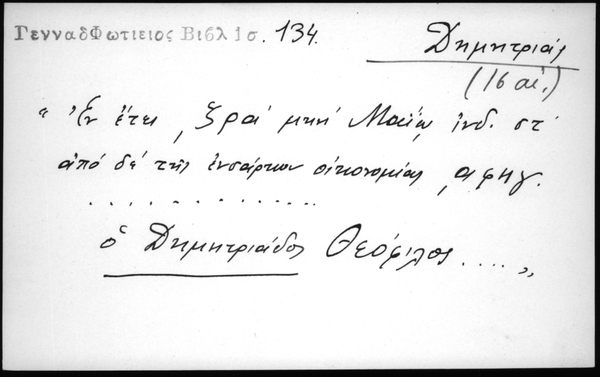 ΓενναδΦωτιειος Βιβλ 1σ. 134.
Δημητριάς
(16 αἰ.)
" Ἐν ἔτει ͵ζρα΄ μηνὶ Μαΐῳ ἰνδ. στ΄
ἀπό δέ τῆς ἐνσάρκου οἰκονομίας ͵αφηγ.
. . . . . . . . . . . . . .
ὁ Δημητριάδος Θεόφιλος ..... "